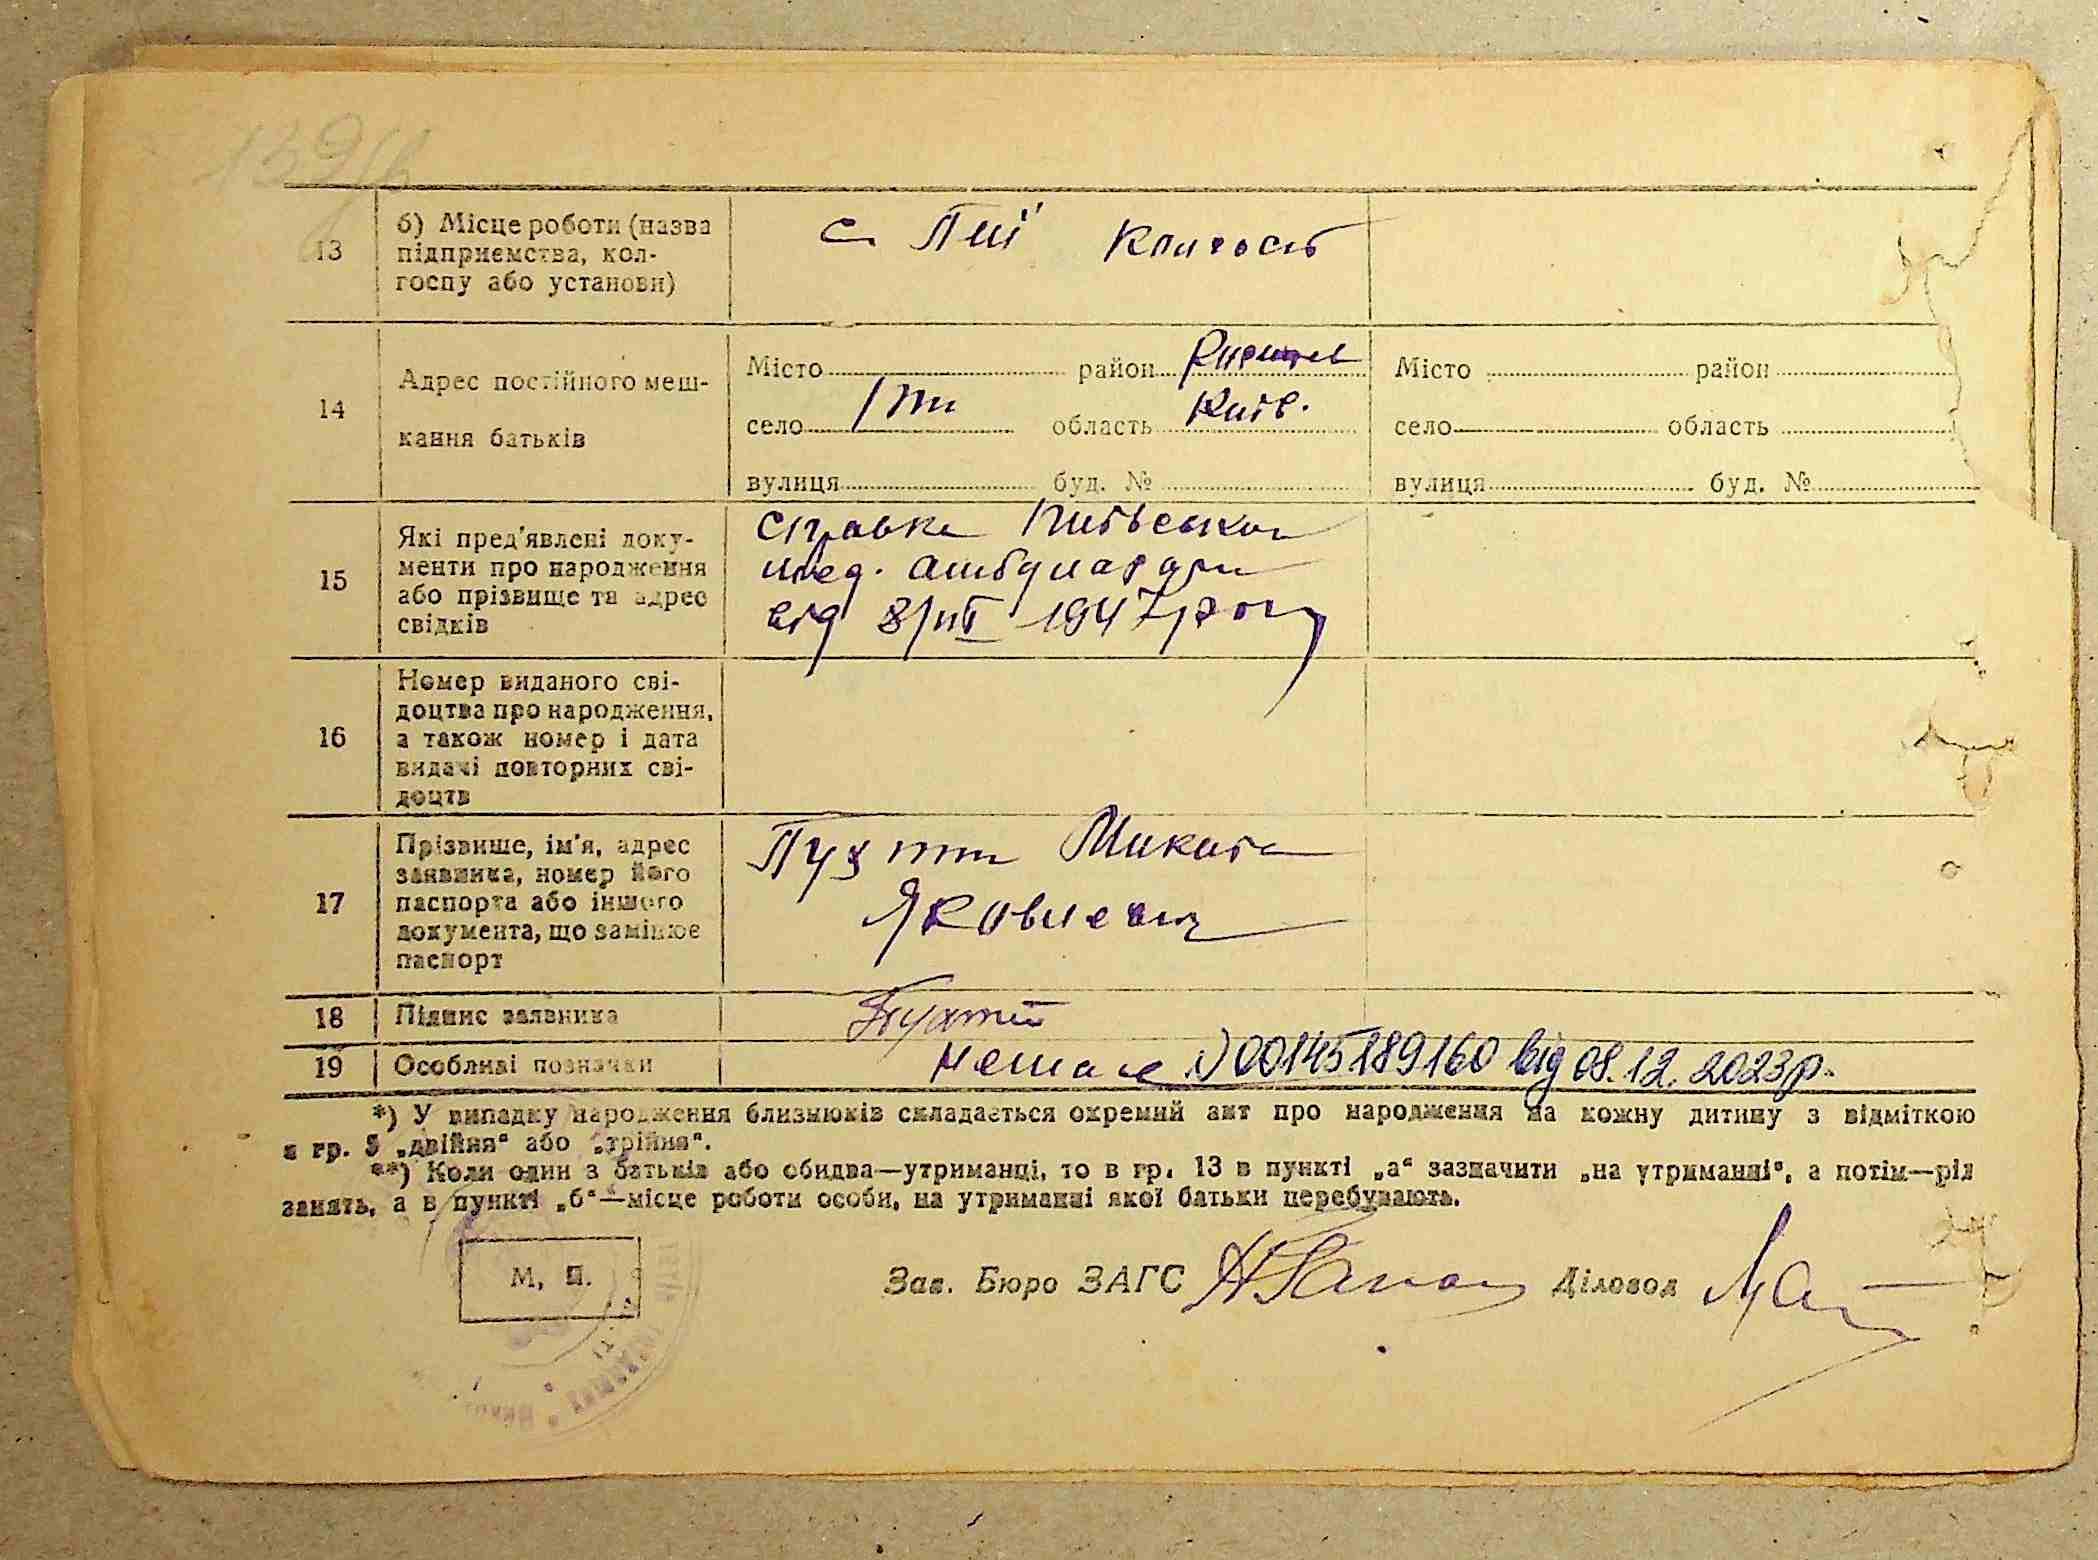 139
13
б) Місце роботи (назва
підприємства, кол-
госпу або установи)
с. Пії Колгосп
14
Адрес постійного меш-
кання батьків
Місто район
село Пії область Київ.
вулиця буд. №
Місто район
село область
вулиця буд. №
15
Які пред'явлені доку-
менти про народження
або прізвище та адрес
свідків
справка
мед. амбулаторії
від 8/ІІІ 1947 року
16
Номер виданого сві-
доцтва про народження,
а також номер і дата
видачі повторних сві-
доцтв
17
Прізвище, ім'я, адрес
заявника, номер його
паспорта або іншого
документа, що замінює
паспорт
Микита
Яковлевич
18
Підпис заявника
19
Особливі позначки
немає №00145189160 від 08.12.2023р.
*) У випадку народження близнюків складається окремий акт про народження на кожну дитину з відміткою
в гр. 5 „двійня“ або „трійня“.
**) Коли один з батьків або обидва—утриманці, то в гр. 13 в пункті „а“ зазначити „на утриманні“, а потім—рід
занять, а в пункті „б“—місце роботи особи, на утриманні якої батьки перебувають.
М. П.
Зав. Бюро ЗАГС
Діловод